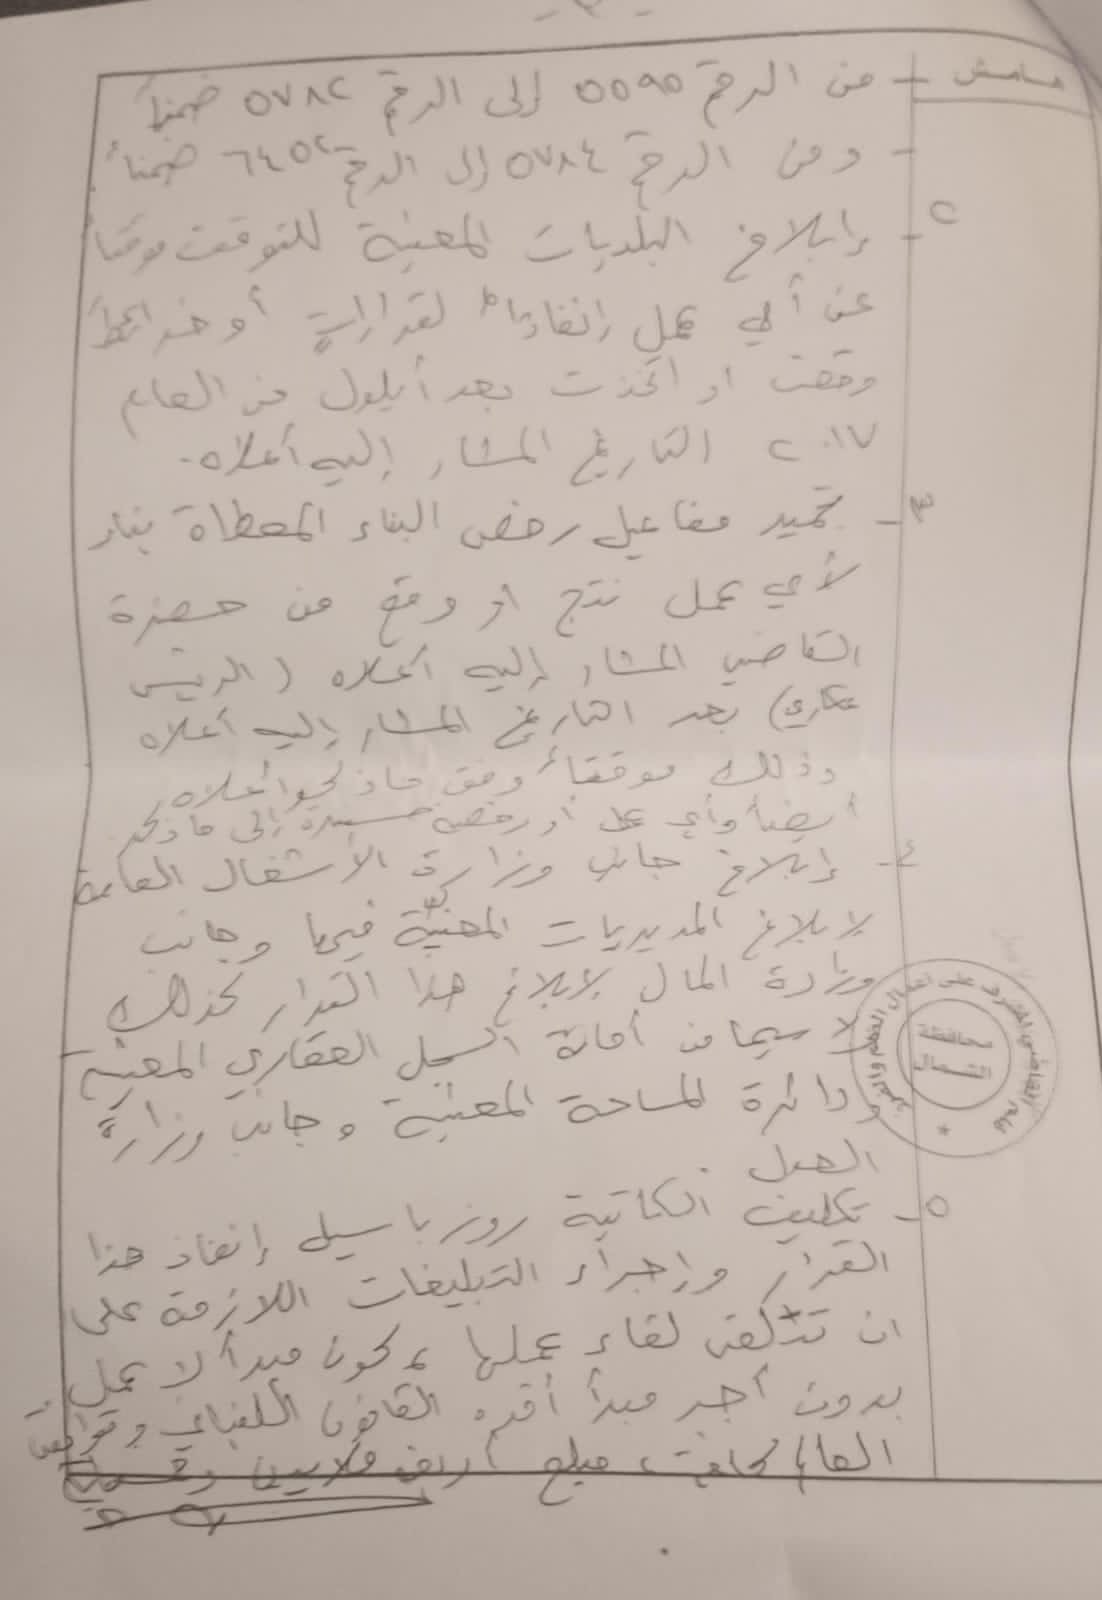 هامش
- من الرقم ٥٥٩٥ إلى الرقم ٥٧٨٢ ضمناً
- ومن الرقم ٥٧٨٤ إلى الرقم ٦٤٥٢ ضمناً
٢- إبلاغ البلديات المعنية للتوقف موقتاً
عن أي عمل إنفاذاً لقرارات أو خرائط
وقعت او اتخذت بعد أيلول من العام
٢٠١٧ التاريخ المشار إليه أعلاه.
٣- تجميد مفاعيل رخص البناء المعطاة
لأي عمل نتج او وقع من حضرة
القاضي المشار إليه أعلاه (الريس
عكاري) بعد التاريخ المشار إليه أعلاه
وذلك موقتاً وفق ما ذكر أعلاه
أيضاً وأي عمل أو رخصة مستندة إلى ما ذكر
٤- إبلاغ جانب وزارة الأشغال العامة
لإبلاغ المديريات المعنية فيها وجانب
وزارة المال لإبلاغ هذا القرار كذلك
لا سيما من أمانة السجل العقاري المعنية
ودائرة المساحة المعنية وجانب وزارة
العدل.
٥- تكليف الكاتبة روز باسيل إنفاذ هذا
القرار وإجراء التبليغات اللازمة على
ان تتلقى لقاء عملها كون مبدأ لا عمل
بدون أجر مبدأ أقره القانون اللبناني
العالم مبلغ ملايين